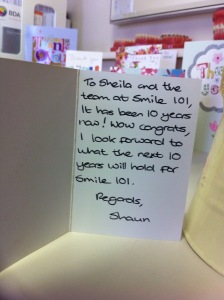 BDA
To Sheila and the
team at Smile 101,
It has been 10 years
now! Wow congrats,
I look forward to
what the next 10
years will hold for
Smile 101.
Regards,
Shaun